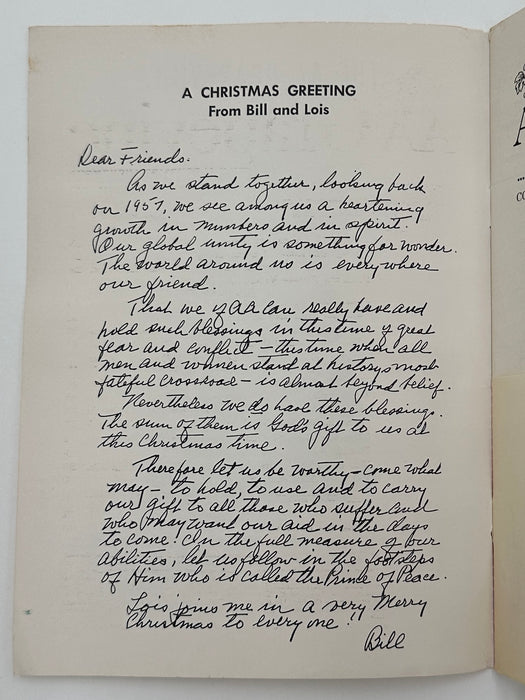 A CHRISTMAS GREETING
From Bill and Lois
Dear Friends:
As we stand together, looking back
on 1957, we see among us a heartening
growth in numbers and in spirit.
Our global unity is something for wonder.
The world around us is everywhere
our friend.
That we of AA can really have and
hold such blessings in this time of great
fear and conflict — this time when all
men and women stand at history's most
fateful crossroad — is almost beyond belief.
Nevertheless we do have these blessings.
The sum of them is God's gift to us at
this Christmas time.
Therefore let us be worthy — come what
may — to hold, to use and to carry
our gift to all those who suffer and
who may want our aid in the days
to come! In the full measure of our
abilities, let us follow in the footsteps
of Him who is called the Prince of Peace.
Lois joins me in a very Merry
Christmas to every one!
Bill